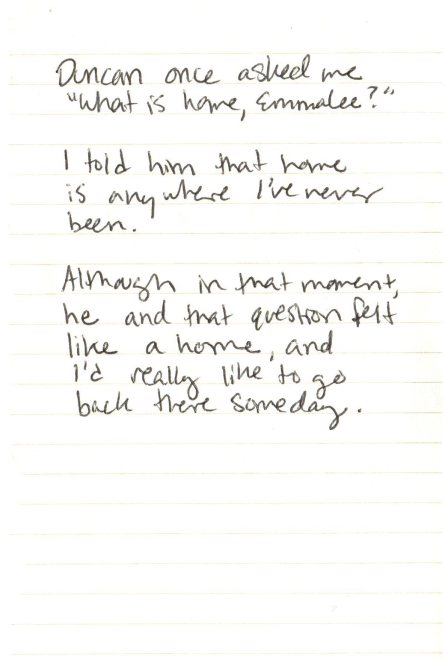 Duncan once asked me
"What is home, Emmalee?"
I told him that home
is anywhere I've never
been.
Although in that moment,
he and that question felt
like a home, and
I'd really like to go
back there someday.